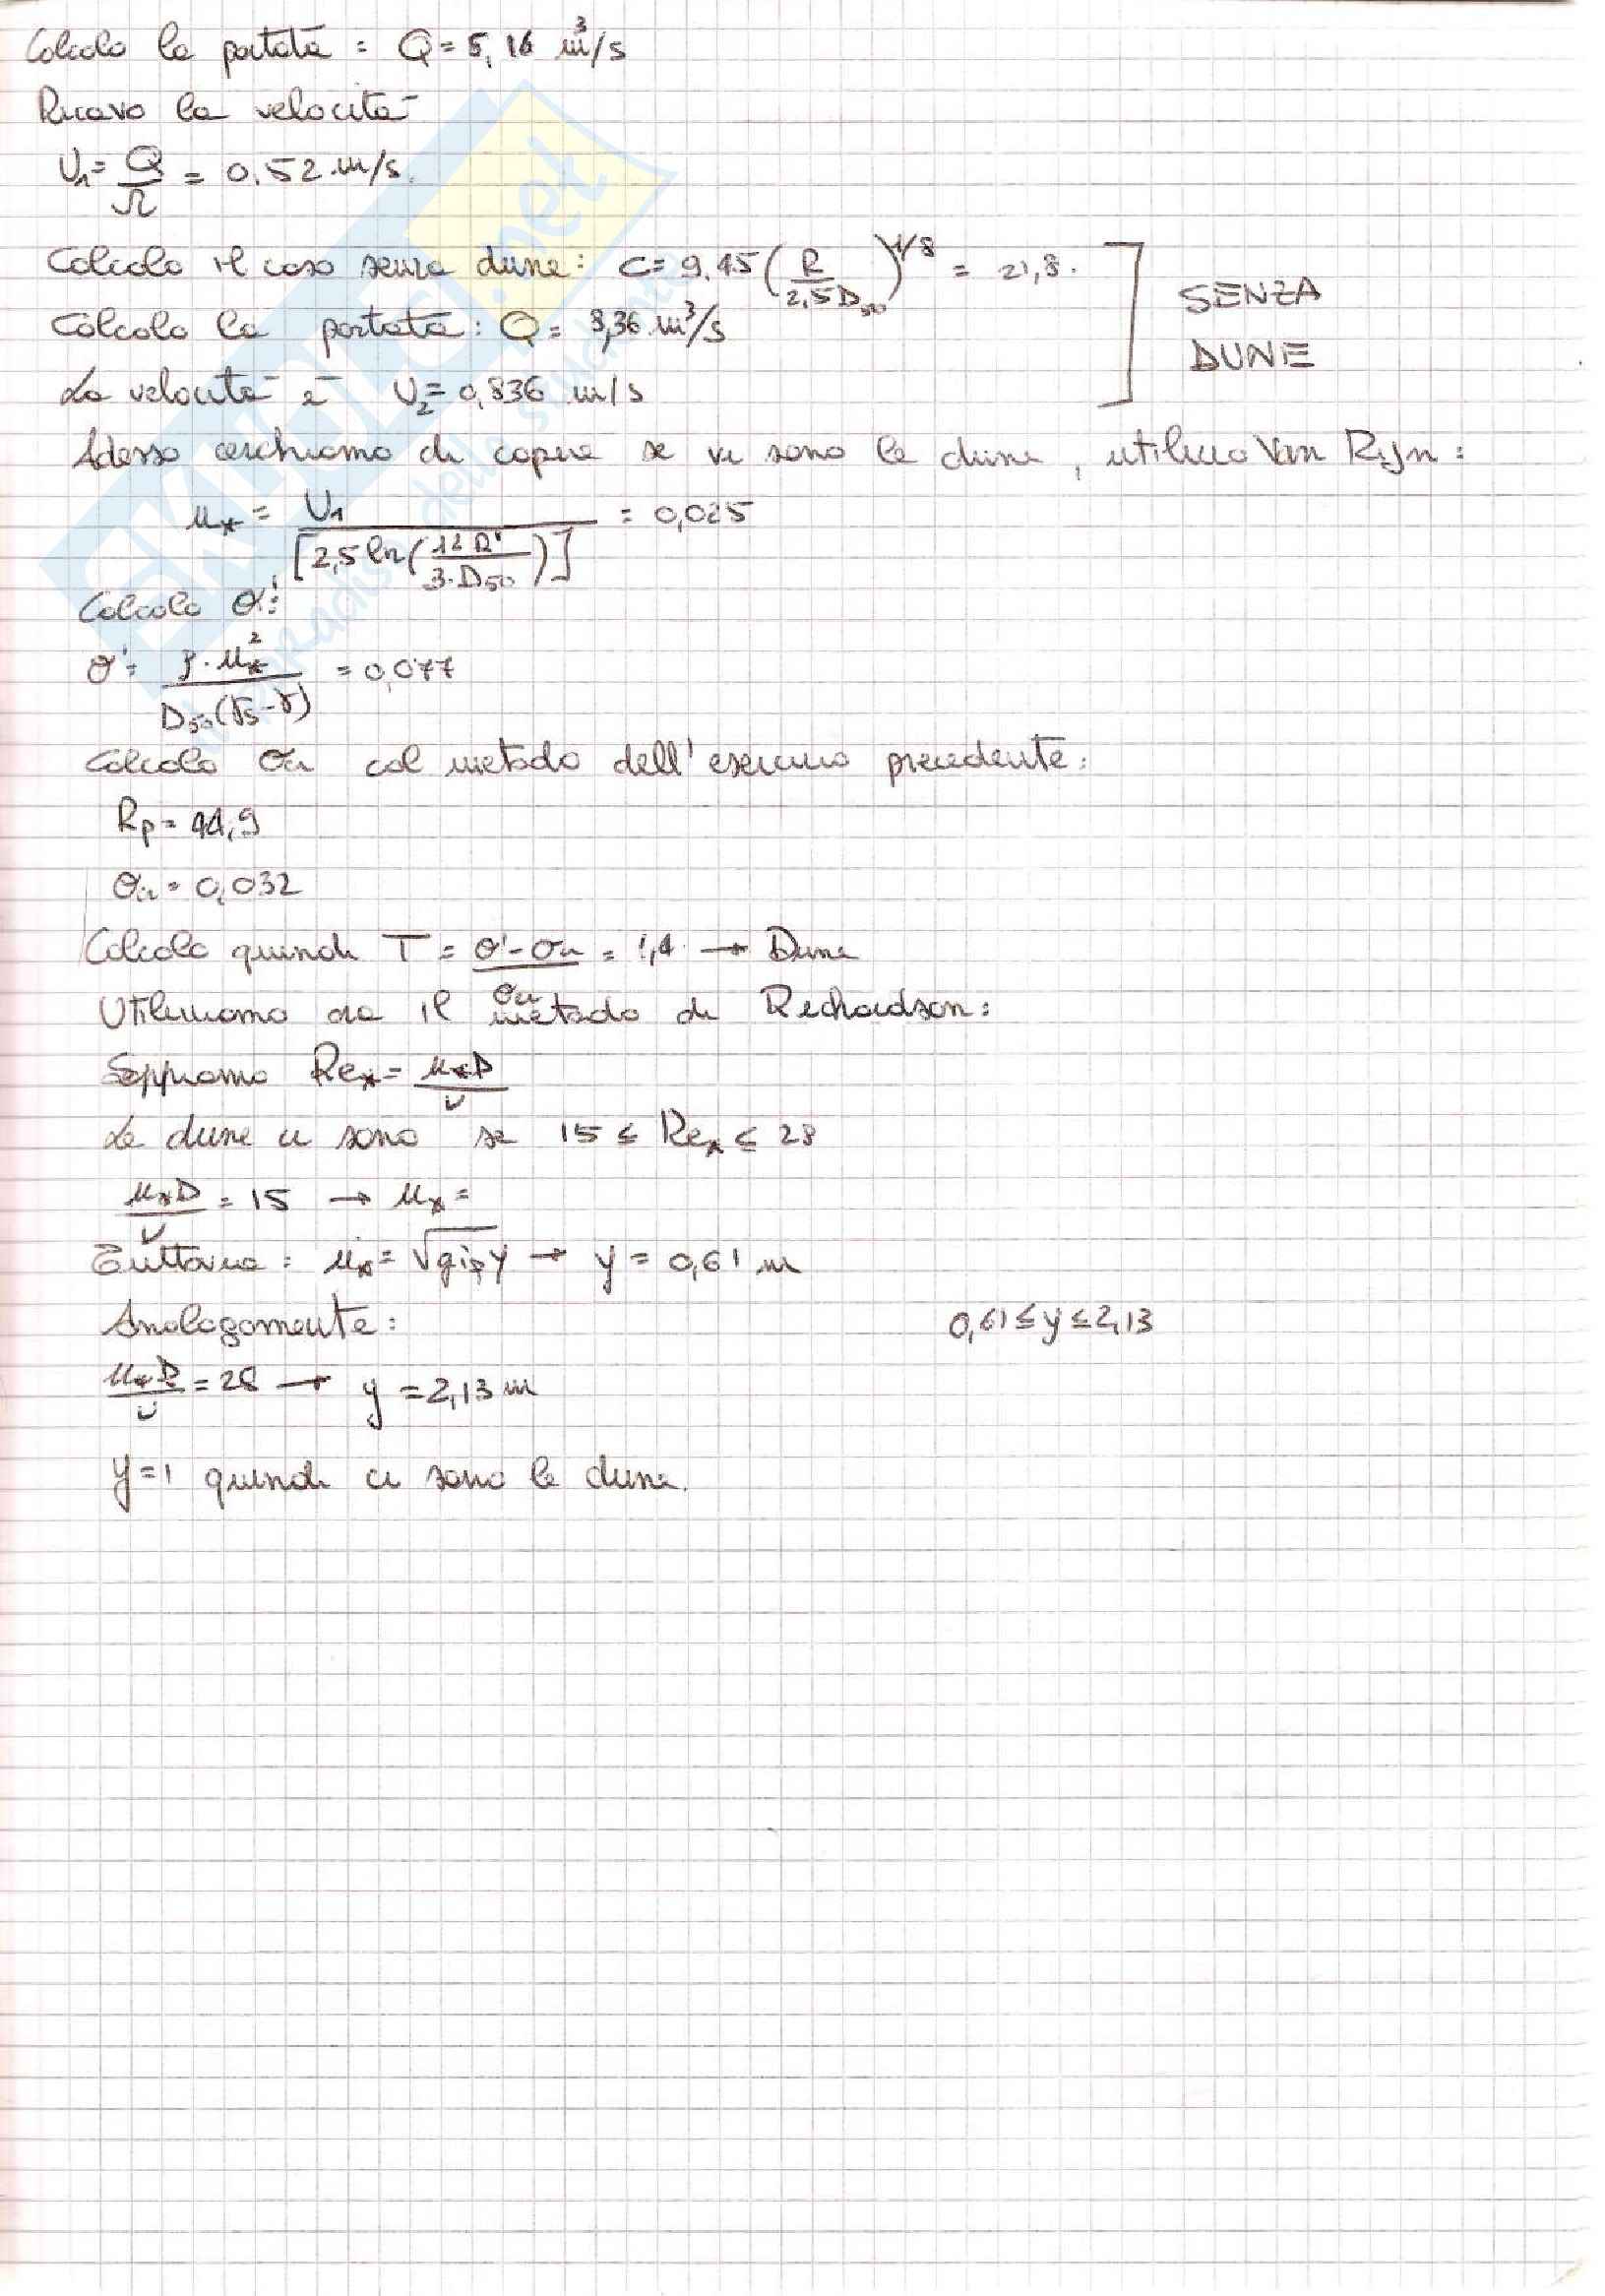 Calcolo la portata : Q = 5,16 m³/s
Ricavo la velocità
U₁ = Q/Ω = 0,52 m/s.
Calcolo il caso senza dune: C = 9,45 (R/2,5D₅₀)^1/8 = 21,8.
Calcolo la portata: Q = 8,36 m³/s
La velocità è U₂ = 0,836 m/s
SENZA
DUNE
Adesso cerchiamo di capire se vi sono le dune, utilizzo Van Rijn:
u* = U₁/[2,5 ln(12 R'/3·D₅₀)] = 0,025
Calcolo θ':
θ' = ρ·u*²/D₅₀(γs-γ) = 0,077
Calcolo θcr col metodo dell'esercizio precedente:
Rp = 44,9
θcr = 0,032
Calcolo quindi T = θ'-θcr/θcr = 1,4 → Dune
Utilizziamo ora il metodo di Richardson:
Sappiamo Re* = u*D/ν
Le dune ci sono se 15 ≤ Re* ≤ 28
u*D/ν = 15 → u* =
Tuttavia: u* = √giFy → y = 0,61 m
Analogamente:
0,61 ≤ y ≤ 2,13
u*D/ν = 28 → y = 2,13 m
y=1 quindi ci sono le dune.
SKUOLA.net